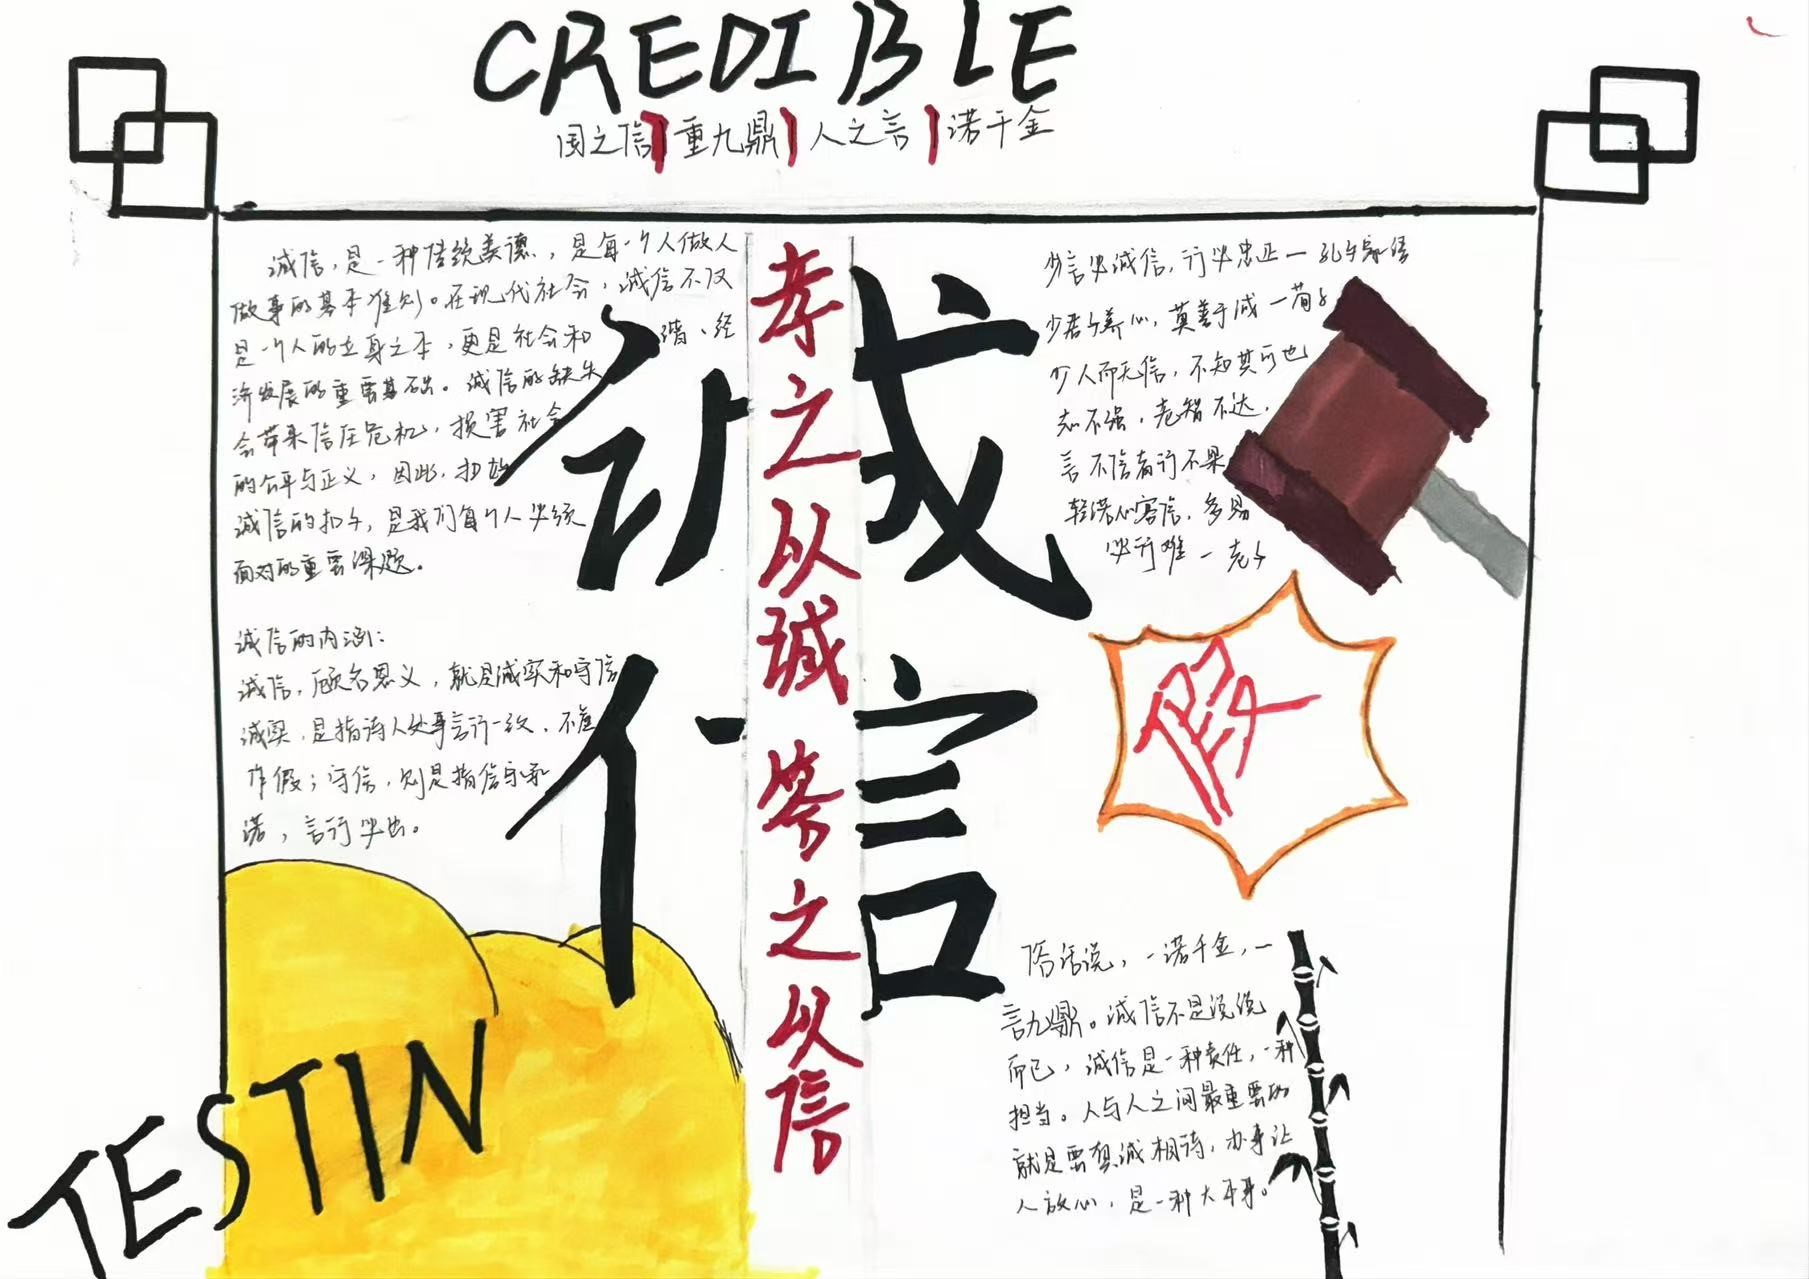 CREDIBLE
国之信 重九鼎 人之言 诺千金
诚信，是一种传统美德，是每一个人做人
做事的基本准则。在现代社会，诚信不仅
是一个人的立身之本，更是社会和谐、经
济发展的重要基础。诚信的缺失
会带来信任危机，损害社会
的公平与正义，因此，
诚信的，是我们每个人必须
面对的重要课题。
诚信的内涵：
诚信，顾名思义，就是诚实和守信
诚实，是指待人处事言行一致，不
作假；守信，则是指信守承
诺，言行必出。
TESTIN
诚
信
孝之以诚 答之以信
少言必诚信，行必忠正一孔子家语
少君子养心，莫善于诚一荀子
少人而无信，不知其可也
志不强，老智不达，
言不信者行不果
轻诺必寡信，多易
必行难一老子
假
俗话说，一诺千金，一
言九鼎。诚信不是说说
而已，诚信是一种责任，一种
担当。人与人之间最重要的
就是要以诚相待，办事让
人放心，是一种大